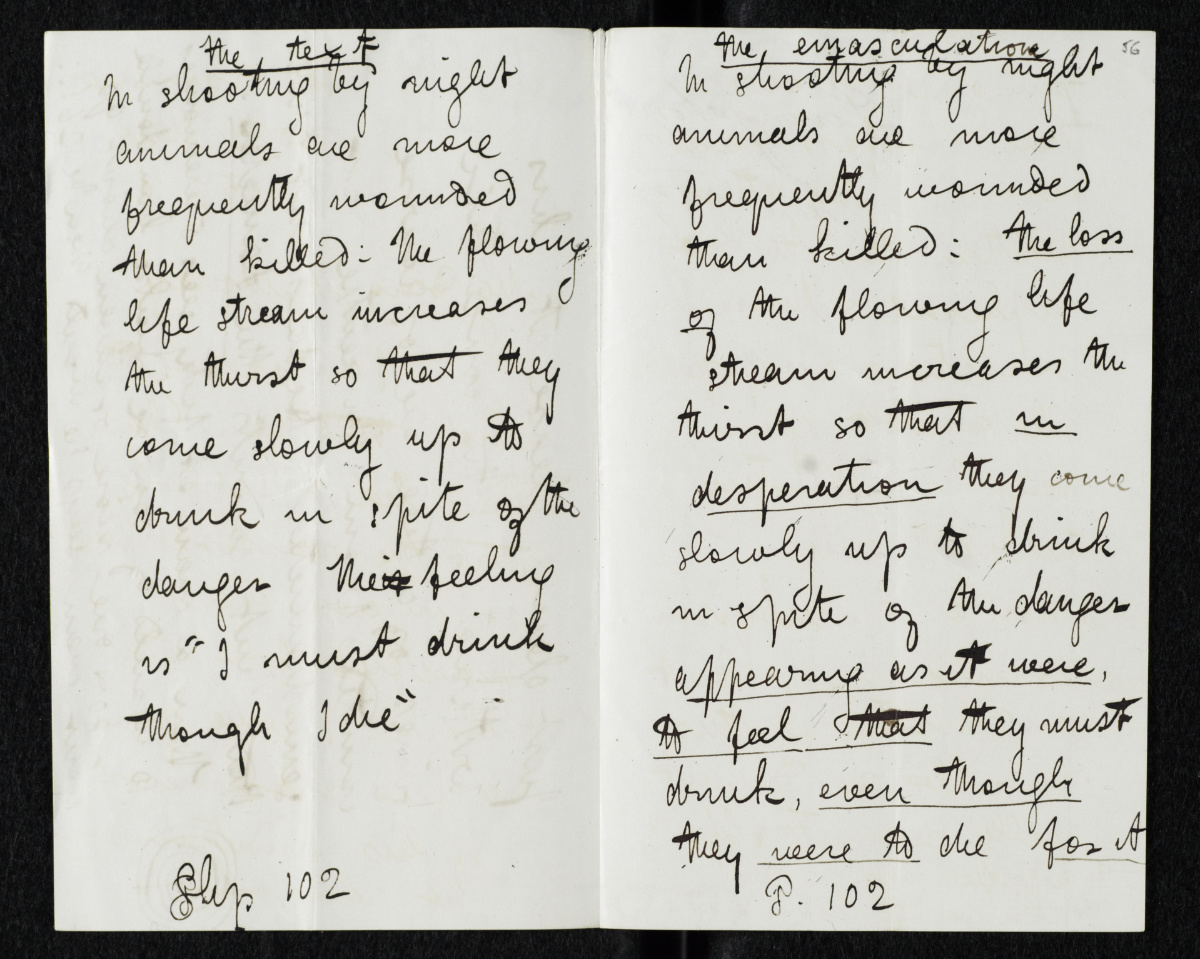 the text
In shooting by night
animals are more
frequently wounded
than killed: The flowing
life stream increases
the thirst so that they
come slowly up to
drink in spite of the
danger Their feeling
is "I must drink
though I die"
Slip 102
56
the emasculation
In shooting by night
animals are more
frequently wounded
than killed: the loss
of the flowing life
stream increases the
thirst so that in
desperation they come
slowly up to drink
in spite of the danger
appearing as it were,
to feel that they must
drink, even though
they were to die for it
P. 102